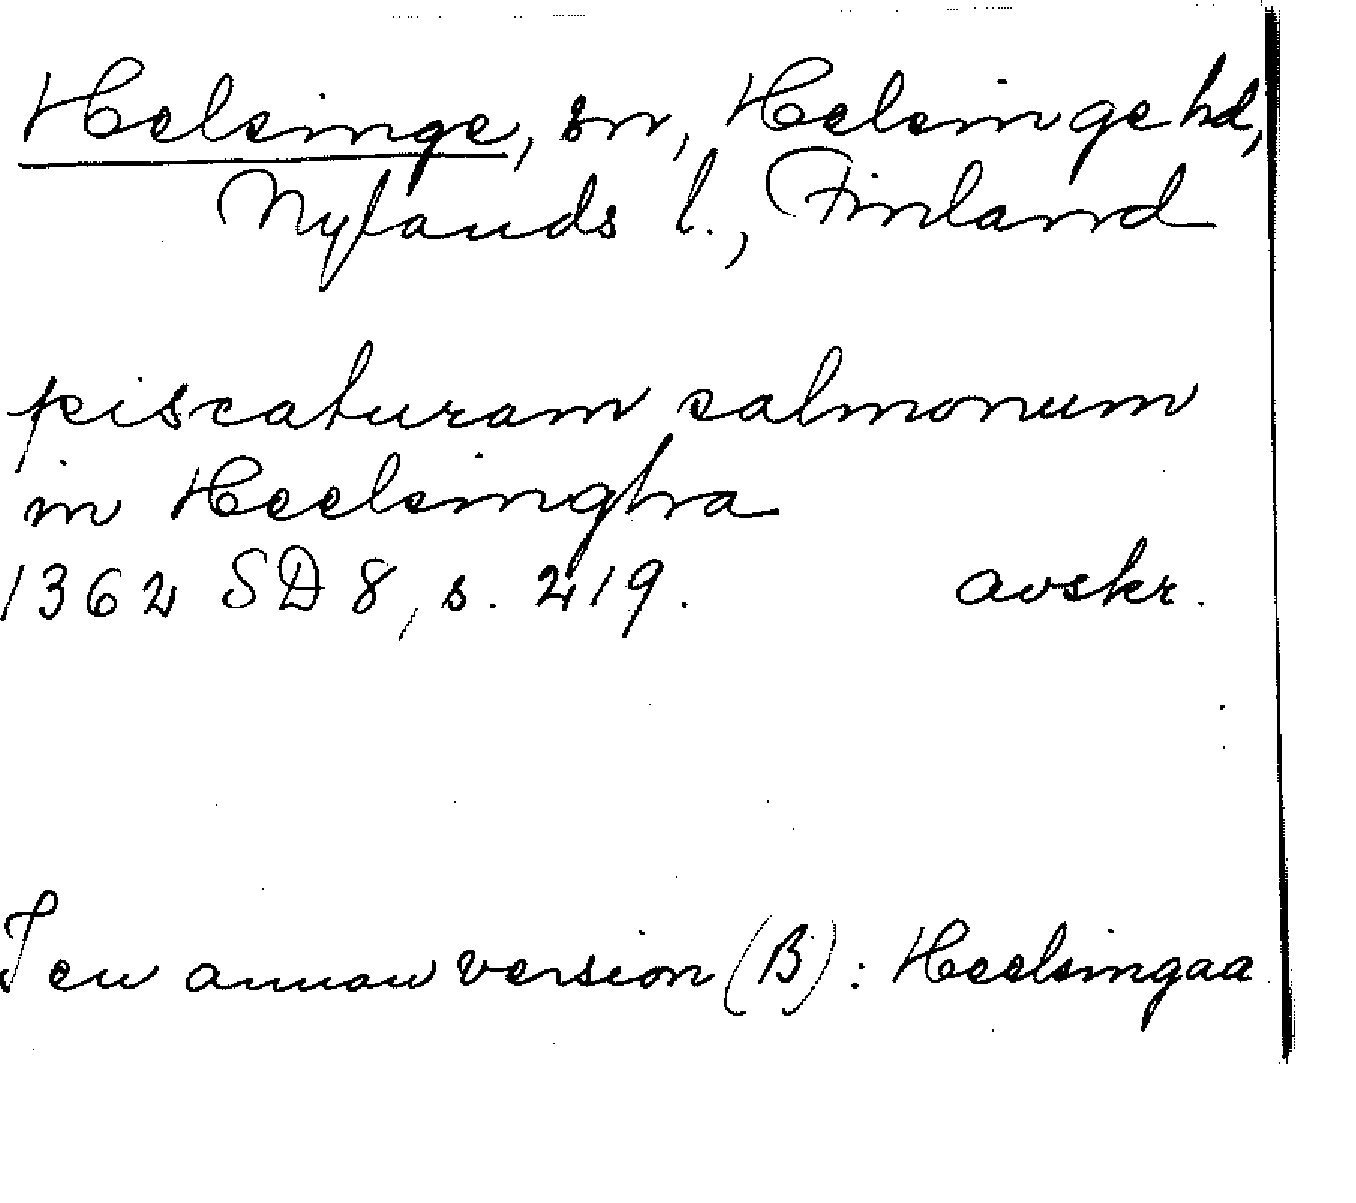 Helsinge, sn, Helsinge hd,
Nylands l., Finland
piscaturam salmonum
in Heelsinghra
1362 SD 8, s. 219. avskr.
I en annan version (B): Heelsingaa